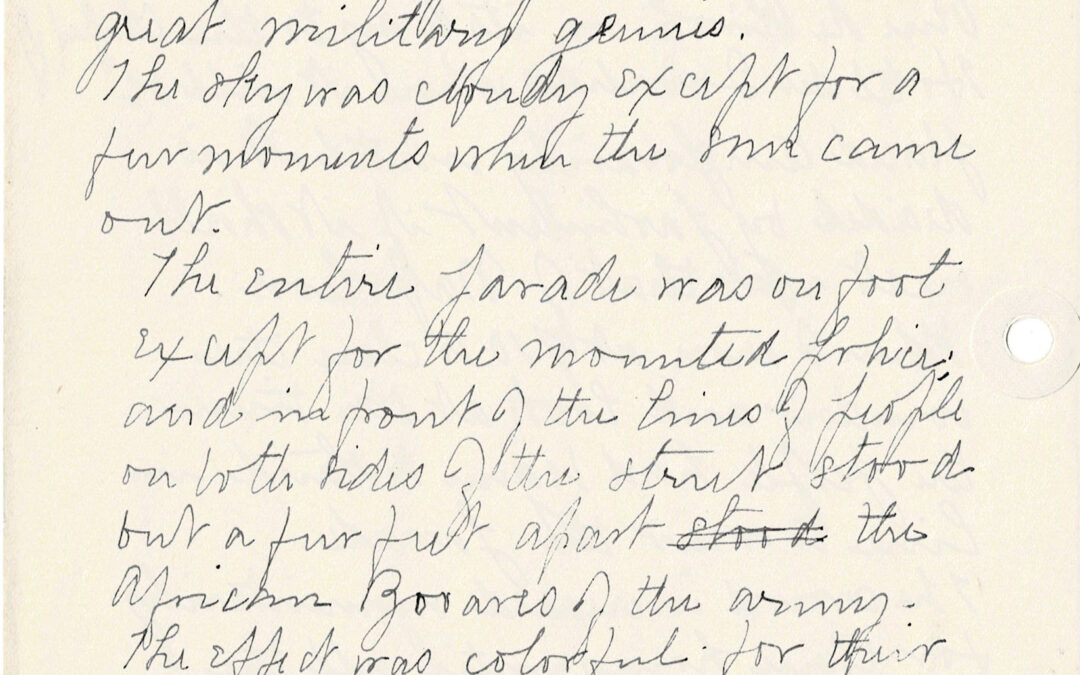 great military genius.
The sky was cloudy except for a
few moments when the sun came
out.
The entire parade was on foot
except for the mounted police;
and in front of the lines of people
on both sides of the street stood
but a few feet apart stood the
African Zouaves of the army.
The effect was colorful for their